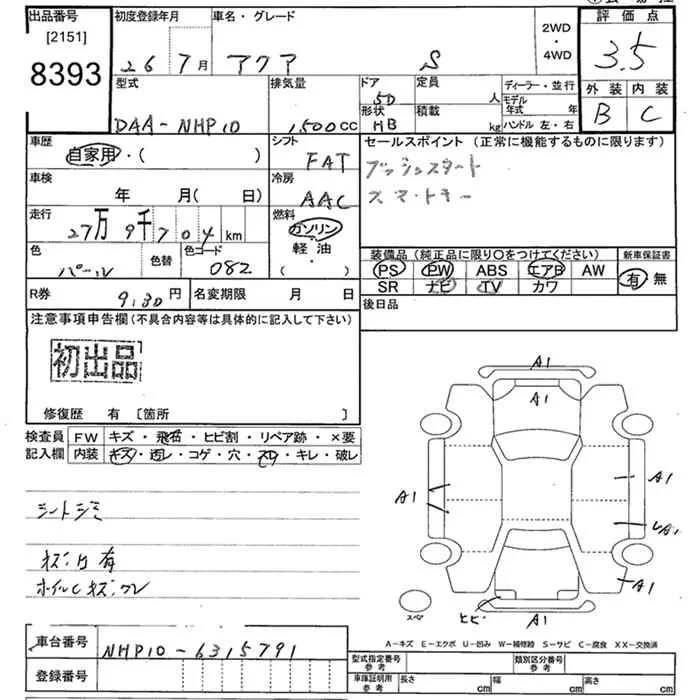 出品番号
[2151]
8393
初度登録年月
26 7月
車名・グレード
アクア S
2WD
・
4WD
評価点
3.5
外装 内装
B C
型式
DAA-NHP10
排気量
1,500cc
ドア
5D
形状
HB
定員
人
積載
kg
ディーラー・並行
モデル年式 年
ハンドル 左・右
車歴
自家用・( )
シフト
FAT
セールスポイント(正常に機能するものに限ります)
プッシュスタート
スマートキー
車検
年 月(日)
冷房
AAC
走行
27万9千704km
燃料
ガソリン
軽・油
・( )
色
パール
色替
色コード
082
装備品(純正品に限り〇をつけてください)
新車保証書
PS PW ABS エアB AW
SR ナビ TV カワ
有・無
R券 9,130円
名変期限 月 日
後日品
注意事項申告欄(不具合内容等は具体的に記入して下さい)
初出品
修復歴 有 [箇所 ]
検査員
記入欄
FW キズ・飛石・ヒビ割・リペア跡・×要
内装 キズ・汚レ・コゲ・穴・スレ・キレ・破レ
シートシミ
ホイルCキズ,ワレ
A1
A1
A1
A1
A1
A1
A1
ヒビ
スペア
A-キズ E-エクボ U-凹み W-補修跡 S-サビ C-腐食 XX-交換済
車台番号
NHP10-6315791
登録番号
型式指定番号
参考
類別区分番号
参考
車庫証明用
参考
長さ cm
幅 cm
高さ cm